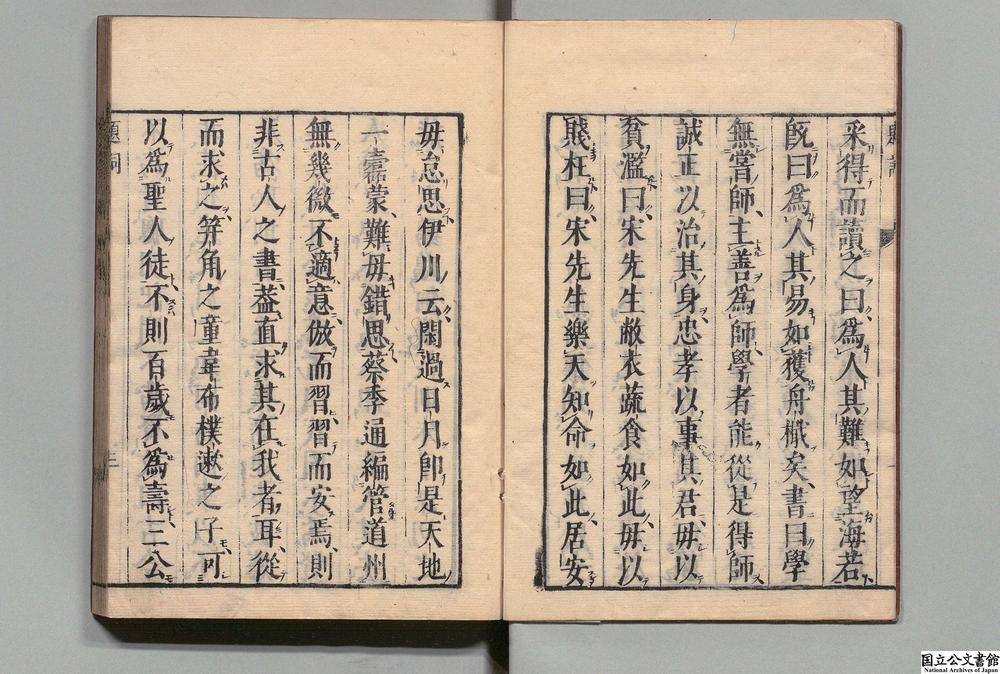 題詞
采得而讀之曰爲人其難如望海若
旣曰爲人其易如獲舟檝矣書曰學
無嘗師主善爲師學者能從是得師
誠正以治其身忠孝以事其君毋以
貧濫曰宋先生敝衣蔬食如此毋以
賤枉曰宋先生樂天知命如此居安
毋怠思伊川云閑過日月卽是天地
一蠹蒙難毋錯思蔡季通編管道州
無幾微不適意倣而習習而安焉則
非古人之書葢直求其在我者耳從
而求之笄角之童韋布樸遫之子可
以爲聖人徒不則百歲不爲壽三公
題詞
三
国立公文書館
National Archives of Japan